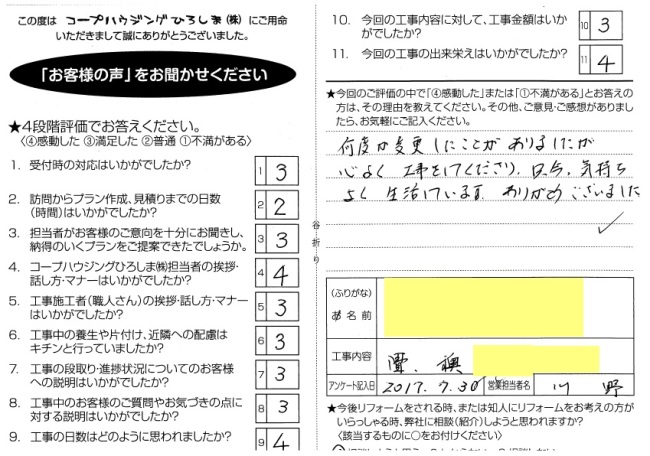 この度は コープハウジングひろしま(株) にご用命
いただきまして誠にありがとうございました。
「お客様の声」をお聞かせください
★4段階評価でお答えください。
〈④感動した ③満足した ②普通 ①不満がある〉
1. 受付時の対応はいかがでしたか?
1 3
2. 訪問からプラン作成、見積りまでの日数
(時間)はいかがでしたか?
2 2
3. 担当者がお客様のご意向を十分にお聞きし、
納得のいくプランをご提案できたでしょうか。
3 3
4. コープハウジングひろしま㈱担当者の挨拶・
話し方・マナーはいかがでしたか?
4 4
5. 工事施工者(職人さん)の挨拶・話し方・マナー
はいかがでしたか?
5 3
6. 工事中の養生や片付け、近隣への配慮は
キチンと行っていましたか?
6 3
7. 工事の段取り・進捗状況についてのお客様
への説明はいかがでしたか?
7 3
8. 工事中のお客様のご質問やお気づきの点に
対する説明はいかがでしたか?
8 3
9. 工事の日数はどのように思われましたか?
9 4
谷折り
10. 今回の工事内容に対して、工事金額はいか
がでしたか?
10 3
11. 今回の工事の出来栄えはいかがでしたか?
11 4
★今回のご評価の中で「④感動した」または「①不満がある」とお答えの
方は、その理由を教えてください。その他、ご意見・ご感想がありまし
たら、お気軽にご記入ください。
何度か変更したことがありましたが
心よく工事をしてくださり、只今、気持ち
よく生活しています。ありがとうございました
(ふりがな)
お名前
工事内容
畳、襖
アンケート記入日
2017.7.30
営業担当者名
川野
★今後リフォームをされる時、または知人にリフォームをお考えの方が
いらっしゃる時、弊社に相談(紹介)しようと思われますか?
〈該当するものに○をお付けください〉